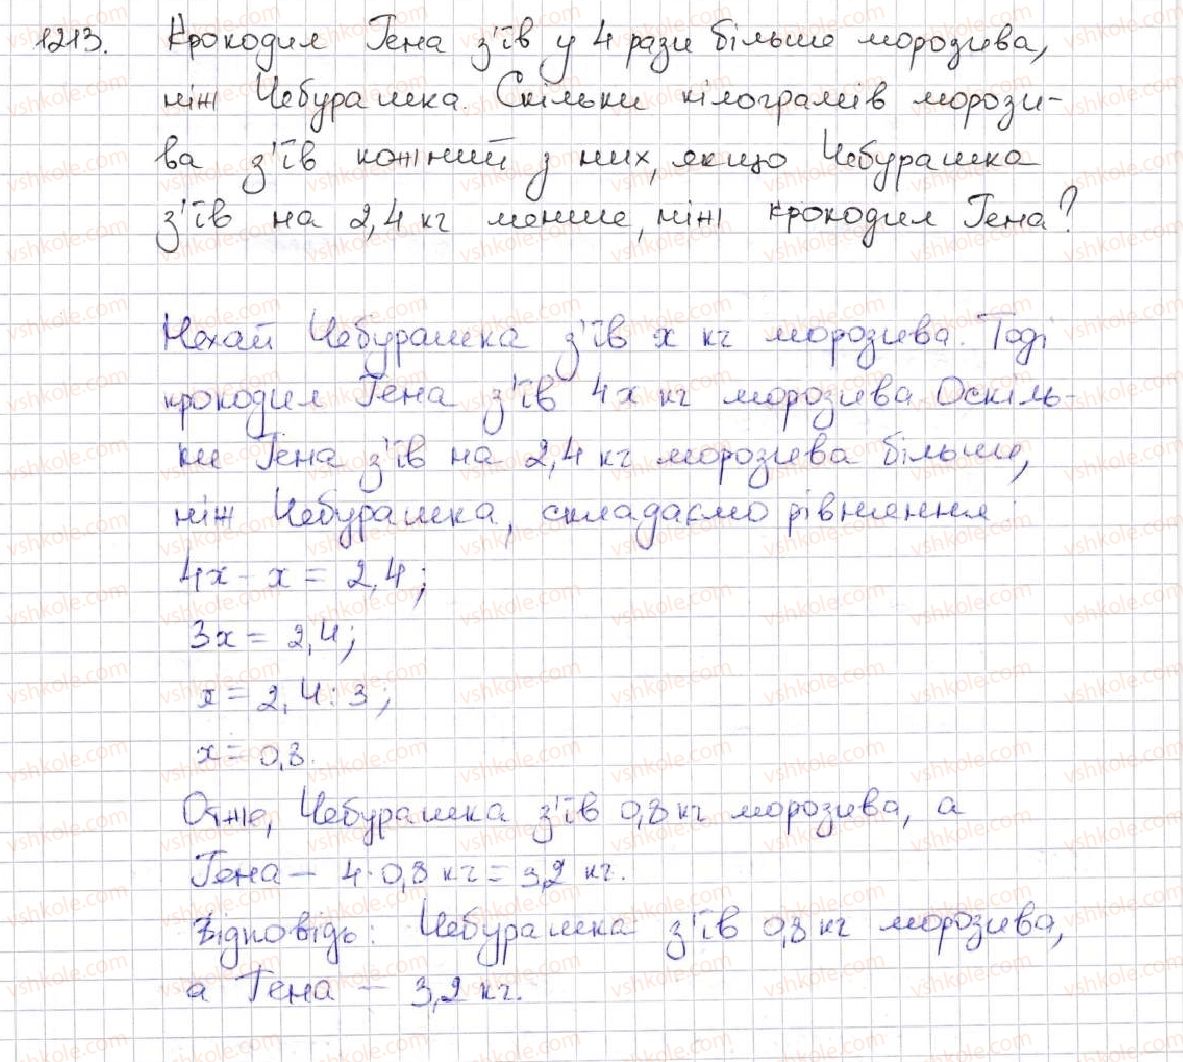 1213. Крокодил Гена з'їв у 4 рази більше морозива,
ніж Чебурашка. Скільки кілограмів морози-
ва з'їв кожний з них, якщо Чебурашка
з'їв на 2,4 кг менше, ніж крокодил Гена?
Нехай Чебурашка з'їв x кг морозива. Тоді
крокодил Гена з'їв 4x кг морозива. Оскіль-
ки Гена з'їв на 2,4 кг морозива більше,
ніж Чебурашка, складаємо рівняння:
4x - x = 2,4;
3x = 2,4;
x = 2,4 : 3;
x = 0,8.
Отже, Чебурашка з'їв 0,8 кг морозива, а
Гена — 4 · 0,8 кг = 3,2 кг.
Відповідь: Чебурашка з'їв 0,8 кг морозива,
а Гена — 3,2 кг.